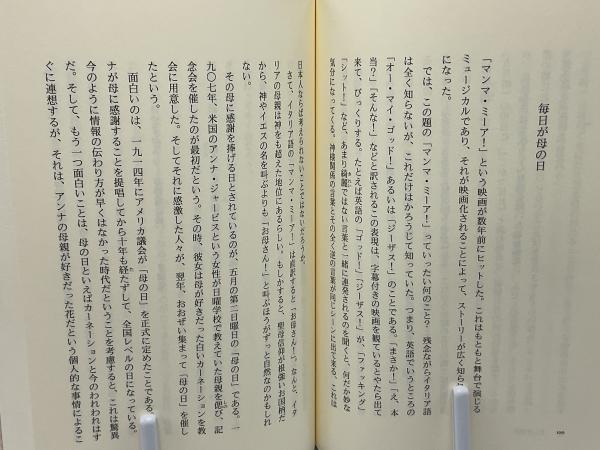 毎日が母の日
「マンマ・ミーア！」という映画が数年前にヒットした。これはもともと舞台で演じる
ミュージカルであり、それが映画化されることによって、ストーリーが広く知ら
になった。
では、この題の「マンマ・ミーア！」っていったい何のこと？　残念ながらイタリア語
は全く知らないが、これだけはかろうじて知っていた。つまり、英語でいうところの
「オー・マイ・ゴッド！」あるいは「ジーザス！」のことである。「まさか！」「え、本
当？」「そんな！」などと訳されるこの表現は、字幕付きの映画を観ているとやたら出て
来て、びっくりする。たとえば英語の「ゴッド！」「ジーザス！」が、「ファッキング」
「シット！」など、あまり綺麗ではない言葉と一緒に連発されるのを聞くと、何だか妙な
気分になってくる。神様関係の言葉とその全く逆の言葉が同じシーンに出て来る、これは
199
日本人ならば考えられないことではないだろうか。
さて、イタリア語の「マンマ・ミーア！」は直訳すると「お母さん！」。なんと、イタ
リアの母親は神をも超えた地位にあるらしい。もしかすると、聖母信仰が根強いお国柄だ
から、神やイエスの名を叫ぶよりも「お母さん！」と叫ぶほうがずっと自然なのかもしれ
ない。
その母に感謝を捧げる日とされているのが、五月の第二日曜日の「母の日」である。一
九〇七年、米国のアンナ・ジャービスという女性が日曜学校で教えていた母親を偲び、記
念会を催したのが最初だという。その時、彼女は母が好きだった白いカーネーションを教
会に用意した。そしてそれに感激した人々が、翌年、おおぜい集まって「母の日」を催し
たという。
面白いのは、一九一四年にアメリカ議会が「母の日」を正式に定めたことである。
ナが母に感謝することを提唱してから十年も経たずして、全国レベルの日になっている。
今のように情報の伝わり方が早くはなかった時代だということを考慮すると、これは驚異
だ。そして、もう一つ面白いことは、母の日といえばカーネーションと今のわれわれはす
ぐに連想するが、それは、アンナの母親が好きだった花だという個人的な事情によるこ